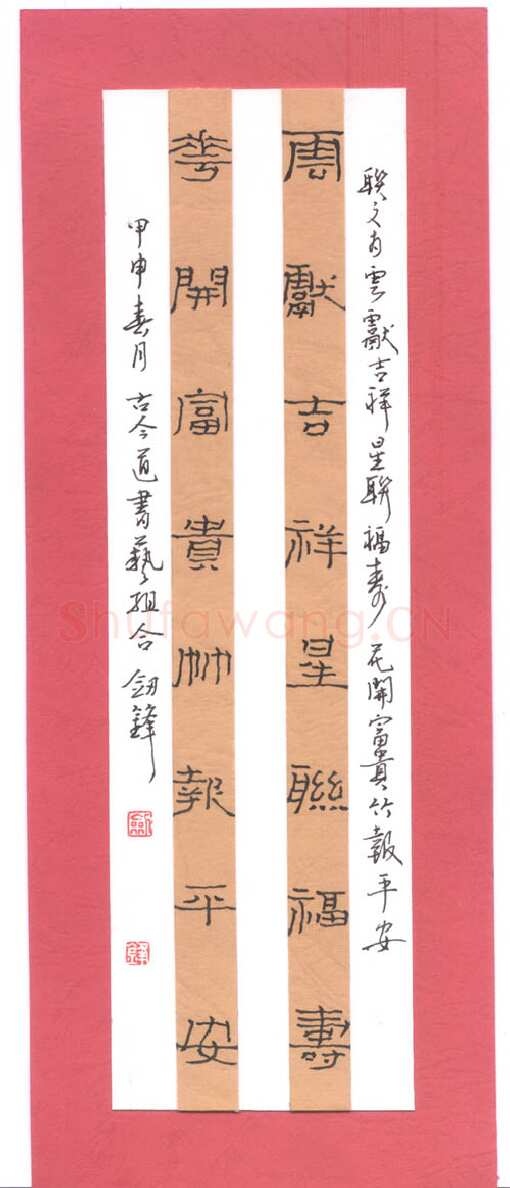 聯文雲獻吉祥星聯福壽 花開富貴竹報平安
雲獻吉祥星聯福壽
華開富貴竹報平安
甲申春月 古今道書藝組合 劍鋒
Shufawang.CN